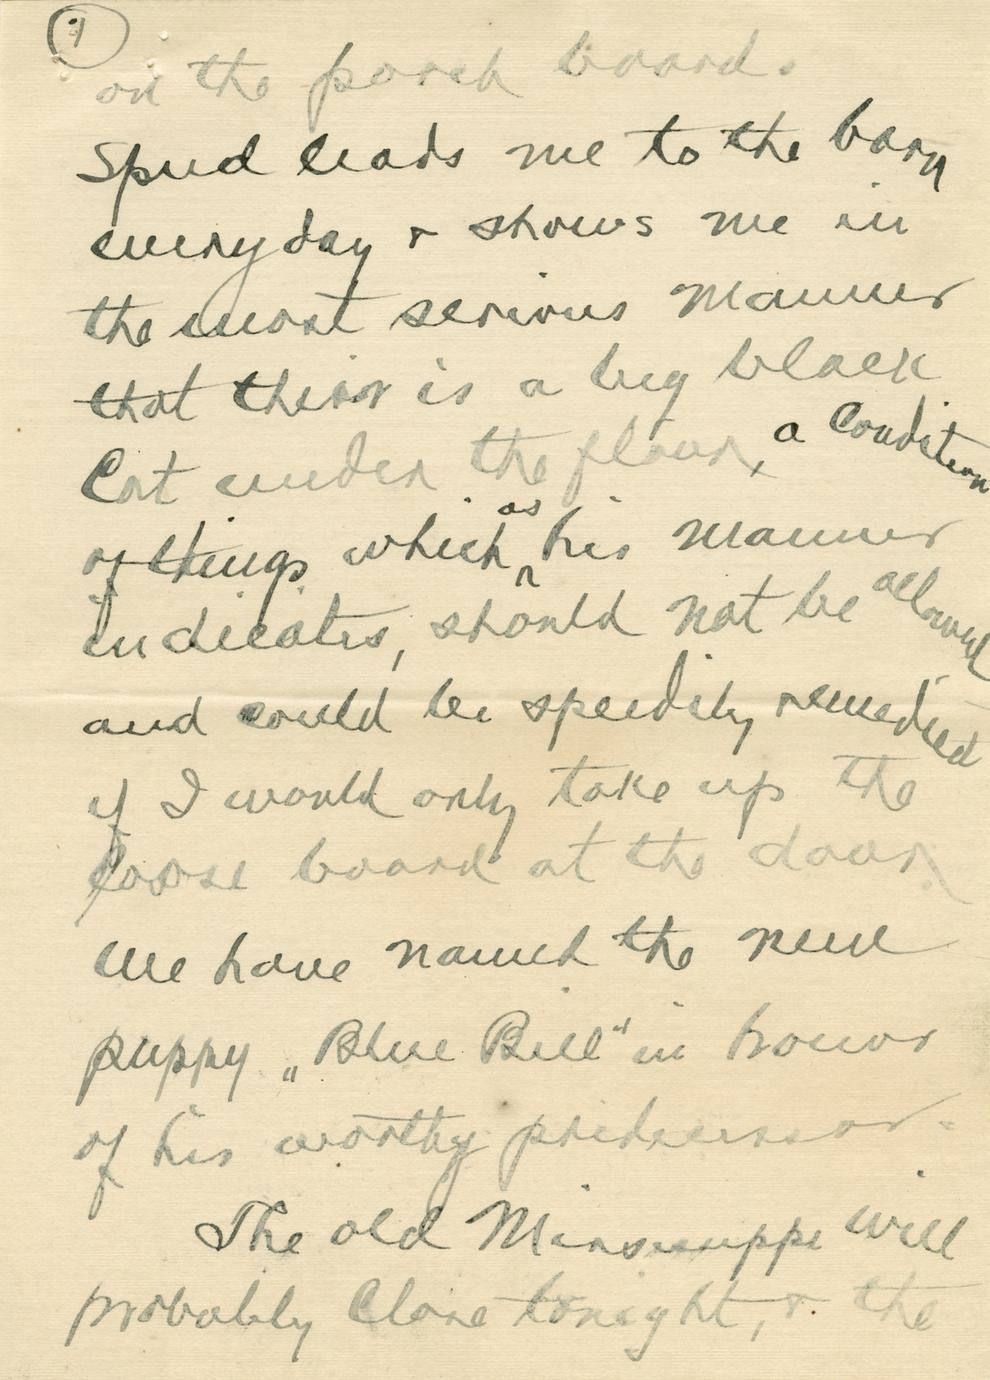 on the porch boards
Spud leads me to the barn
everyday + shows me in
the most serious manner
that there is a big black
Cat under the floor, a Condition
of things which as his manner
indicates, should not be allowed
and could be speedily remedied
if I would only take up the
loose board at the door.
We have named the new
puppy „Blue Bill" in honor
of his worthy predecessor.
The old Mississippi will
probably Close tonight, + the